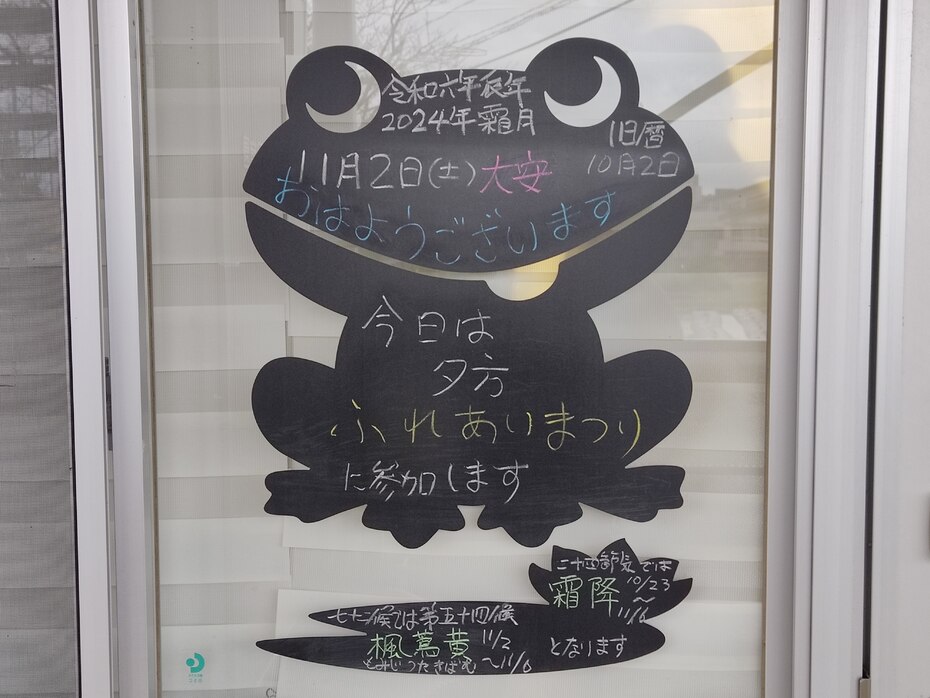 令和六年辰年
2024年霜月
旧暦
10月2日
11月2日(土)大安
おはようございます
今日は
夕方
ふれあいまつり
に参加します
二十四節気では
霜降 10/23
～
11/6
七十二候では第五十四候
楓蔦黄 11/2
もみじつたきばむ ～11/6
となります